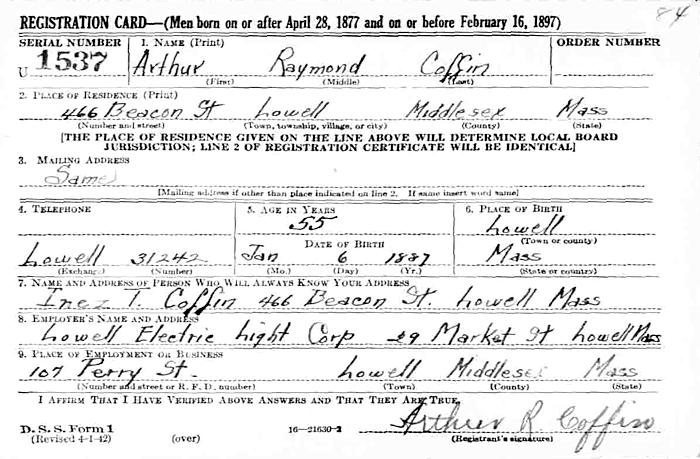 84
REGISTRATION CARD—(Men born on or after April 28, 1877 and on or before February 16, 1897)
SERIAL NUMBER 1. NAME (Print) ORDER NUMBER
U 1537 Arthur Raymond Coffin
(First) (Middle) (Last)
2. PLACE OF RESIDENCE (Print)
466 Beacon St Lowell Middlesex Mass
(Number and street) (Town, township, village, or city) (County) (State)
[THE PLACE OF RESIDENCE GIVEN ON THE LINE ABOVE WILL DETERMINE LOCAL BOARD
JURISDICTION; LINE 2 OF REGISTRATION CERTIFICATE WILL BE IDENTICAL]
3. MAILING ADDRESS
Same
[Mailing address if other than place indicated on line 2. If same insert word same]
4. TELEPHONE 5. AGE IN YEARS 6. PLACE OF BIRTH
55 Lowell
DATE OF BIRTH (Town or county)
Lowell 31242 Jan 6 1887 Mass
(Exchange) (Number) (Mo.) (Day) (Yr.) (State or country)
7. NAME AND ADDRESS OF PERSON WHO WILL ALWAYS KNOW YOUR ADDRESS
Inez I. Coffin 466 Beacon St. Lowell Mass
8. EMPLOYER'S NAME AND ADDRESS
Lowell Electric Light Corp 29 Market St Lowell Mass
9. PLACE OF EMPLOYMENT OR BUSINESS
107 Perry St. Lowell Middlesex Mass
(Number and street or R. F. D. number) (Town) (County) (State)
I AFFIRM THAT I HAVE VERIFIED ABOVE ANSWERS AND THAT THEY ARE TRUE.
Arthur R Coffin
D. S. S. Form 1 16—21630-2 (Registrant's signature)
(Revised 4-1-42) (over)